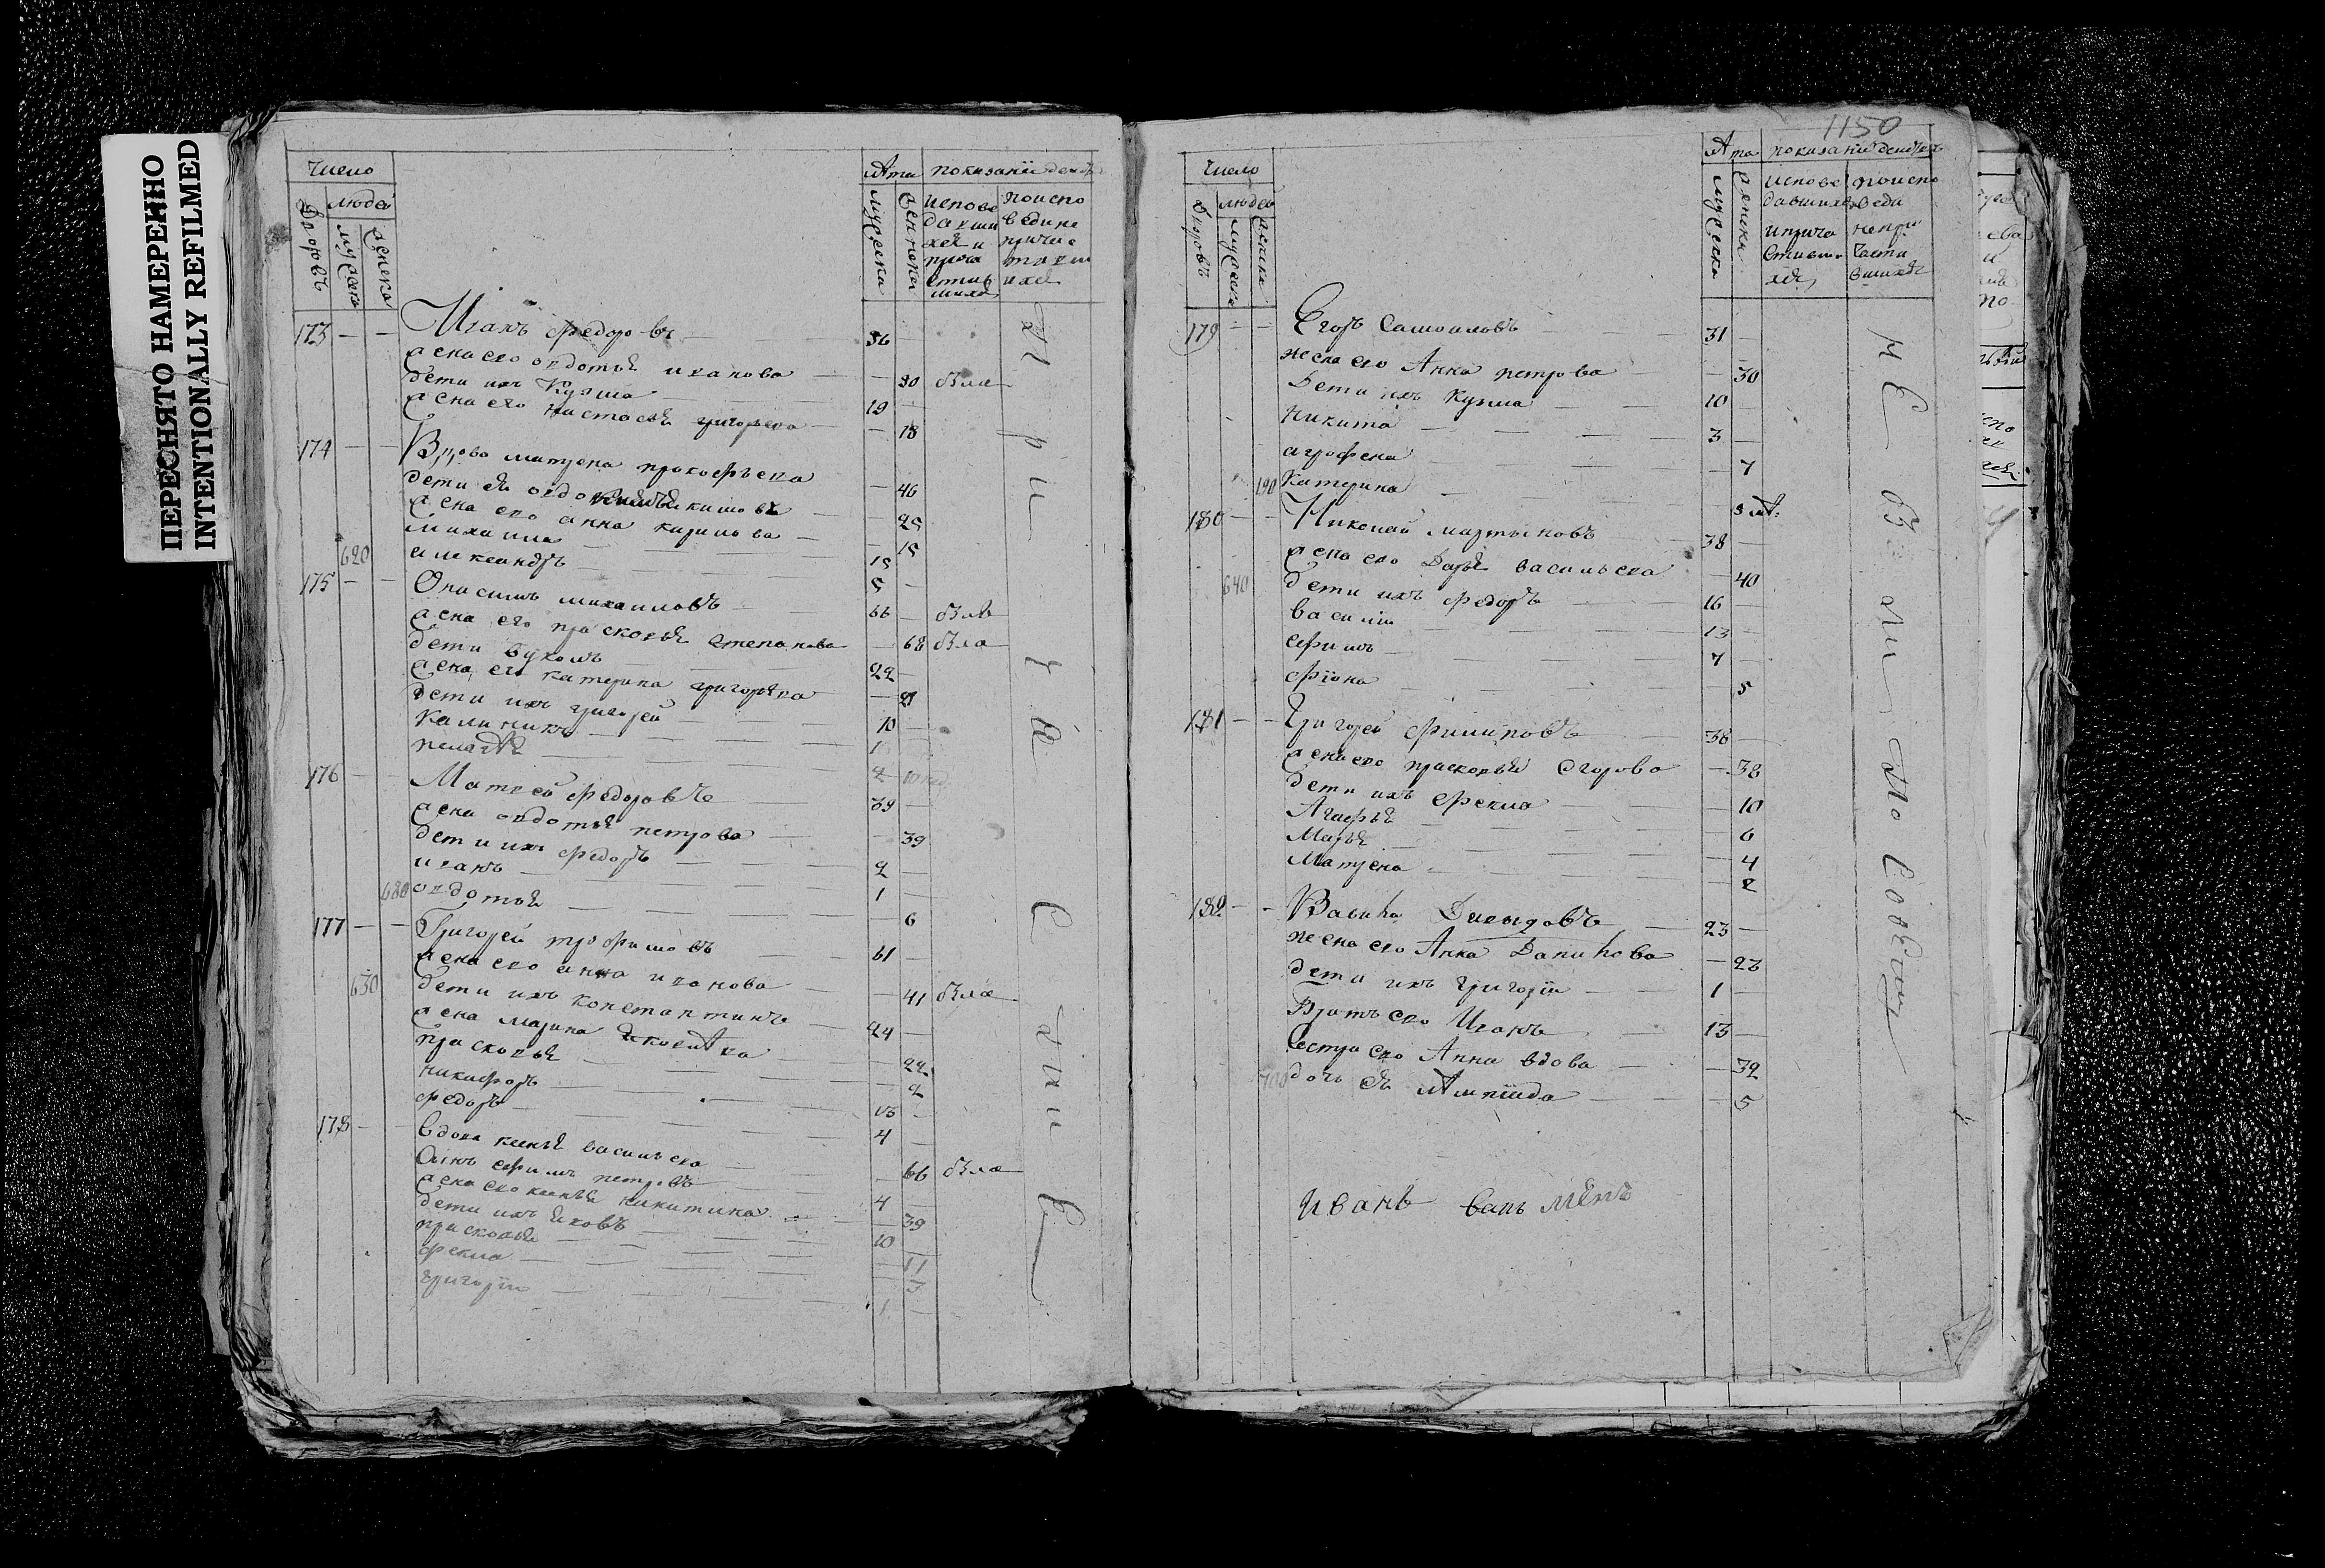 ПЕРЕСНЯТО НАМЕРЕННО
INTENTIONALLY REFILMED
Число
людей
Дворовъ
мужеска
женска
Лета
мужеска
женска
показании действ
испове
давши
хся и
прича
стив
шихся
поиспо
ведине
причас
тивш
ихся
173 Иванъ федоровъ 56
жена его овдотья иванова 50 была
дети ихъ Кузма 19
жена его настасья григорьева 18
174 Вдова матрена прокофьева 46
дети ея овдокимъ екимовъ 25
жена его анна карпова 15
михаила 15
620 александръ 5
175 Онисимъ михаиловъ 66 былъ
жена его прасковья степанова 68 была
дети Вуколъ 22
жена его катерина григорьева 21
дети ихъ григорей 10
калиникъ
пелагея 2
176 Матвей федоровъ 39
жена овдотья петрова 39
дети ихъ федоръ 2
иванъ 1
680 овдотья 6
177 Григорей трофимовъ 61
жена его анна иванова 41 была
630 дети ихъ константинъ 24
жена марина яковлева 22
прасковья 2
никифоръ 13
федоръ 4
178 вдова ксенья васильева 66 была
сынъ ефимъ петровъ 4
жена его ксенья никитина 39
дети ихъ яковъ 10
прасковья 11
фекла 3
григорiй 1
1150
Число
людей
Дворовъ
мужеска
женска
Лета
мужеска
женска
показании действъ
испове
давшихъ
и прича
стивши
хся
поиспо
веди
непри
части
вшихся
179 Егоръ Самоиловъ 31
жена его Анна петрова 30
Дети ихъ Кузма 10
Никита 3
агрофена 7
690 Катерина 3
180 Николай мартыновъ 38
жена его Дарья васильева 40
640 дети ихъ федоръ 16
василiй 13
ефимъ 7
фiона 5
181 Григорей филиповъ 38
жена его прасковья Егорова 38
дети ихъ Фекла 10
Агафья 6
Марья 4
Матрена 2
182 Васила Давыдовъ 23
жена его Анна Данилова 23
дети ихъ григорiй 1
Братъ его Иванъ 13
Сестра его Анна вдова 32
700 дочь ея 5
не были